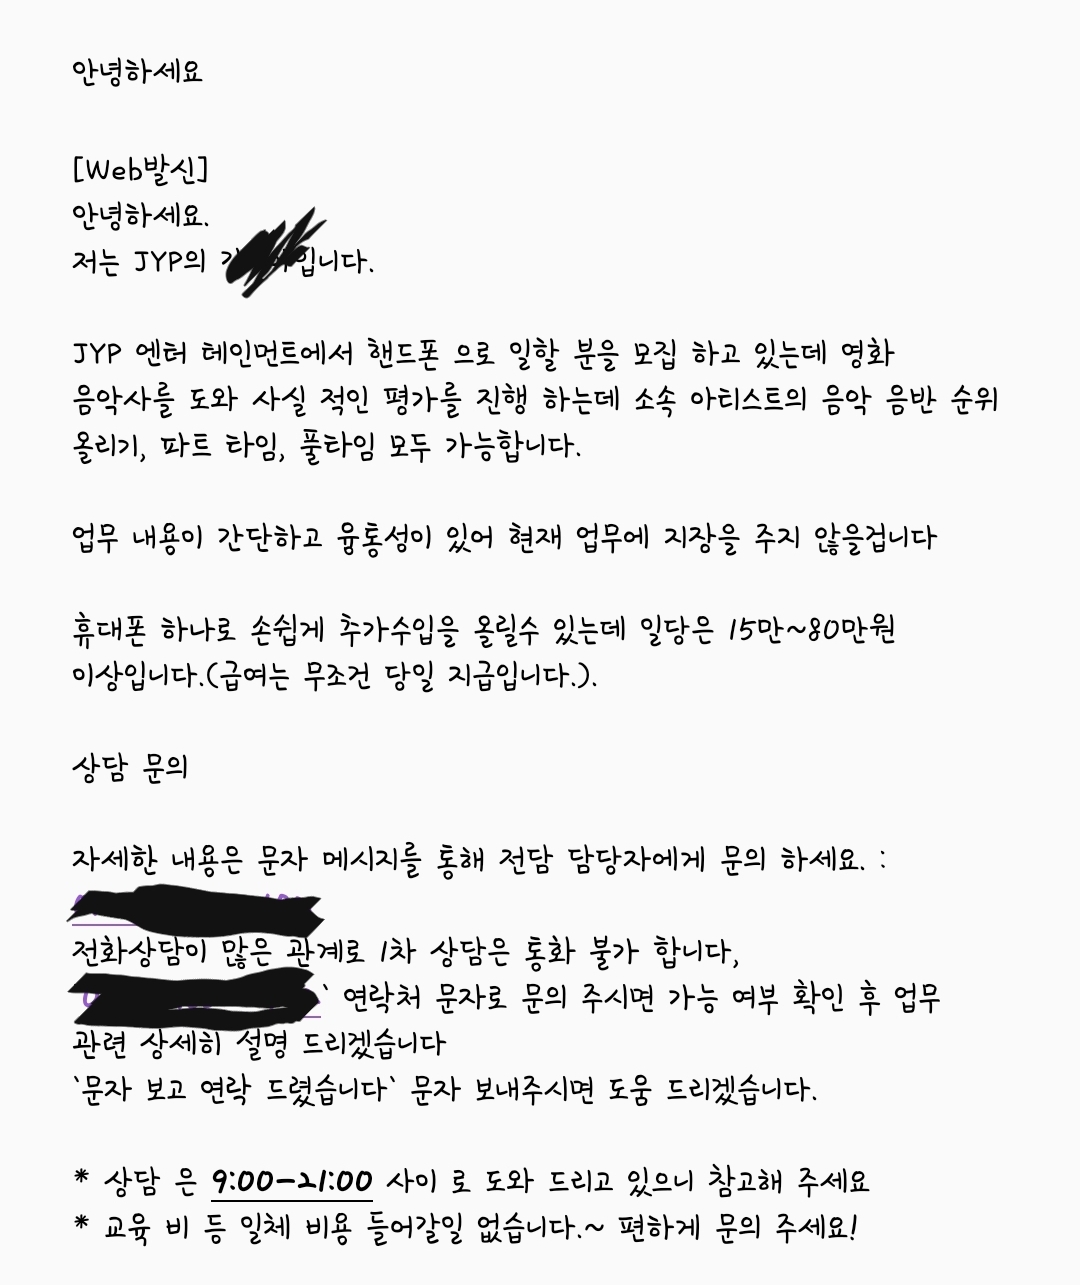 안녕하세요
[Web발신]
안녕하세요.
저는 JYP의 입니다.
JYP 엔터 테인먼트에서 핸드폰 으로 일할 분을 모집 하고 있는데 영화
음악사를 도와 사실 적인 평가를 진행 하는데 소속 아티스트의 음악 음반 순위
올리기, 파트 타임, 풀타임 모두 가능합니다.
업무 내용이 간단하고 융통성이 있어 현재 업무에 지장을 주지 않을겁니다
휴대폰 하나로 손쉽게 추가수입을 올릴수 있는데 일당은 15만~80만원
이상입니다.(급여는 무조건 당일 지급입니다.).
상담 문의
자세한 내용은 문자 메시지를 통해 전담 담당자에게 문의 하세요. :
전화상담이 많은 관계로 1차 상담은 통화 불가 합니다,
` 연락처 문자로 문의 주시면 가능 여부 확인 후 업무
관련 상세히 설명 드리겠습니다
`문자 보고 연락 드렸습니다` 문자 보내주시면 도움 드리겠습니다.
* 상담 은 9:00-21:00 사이 로 도와 드리고 있으니 참고해 주세요
* 교육 비 등 일체 비용 들어갈일 없습니다.~ 편하게 문의 주세요!